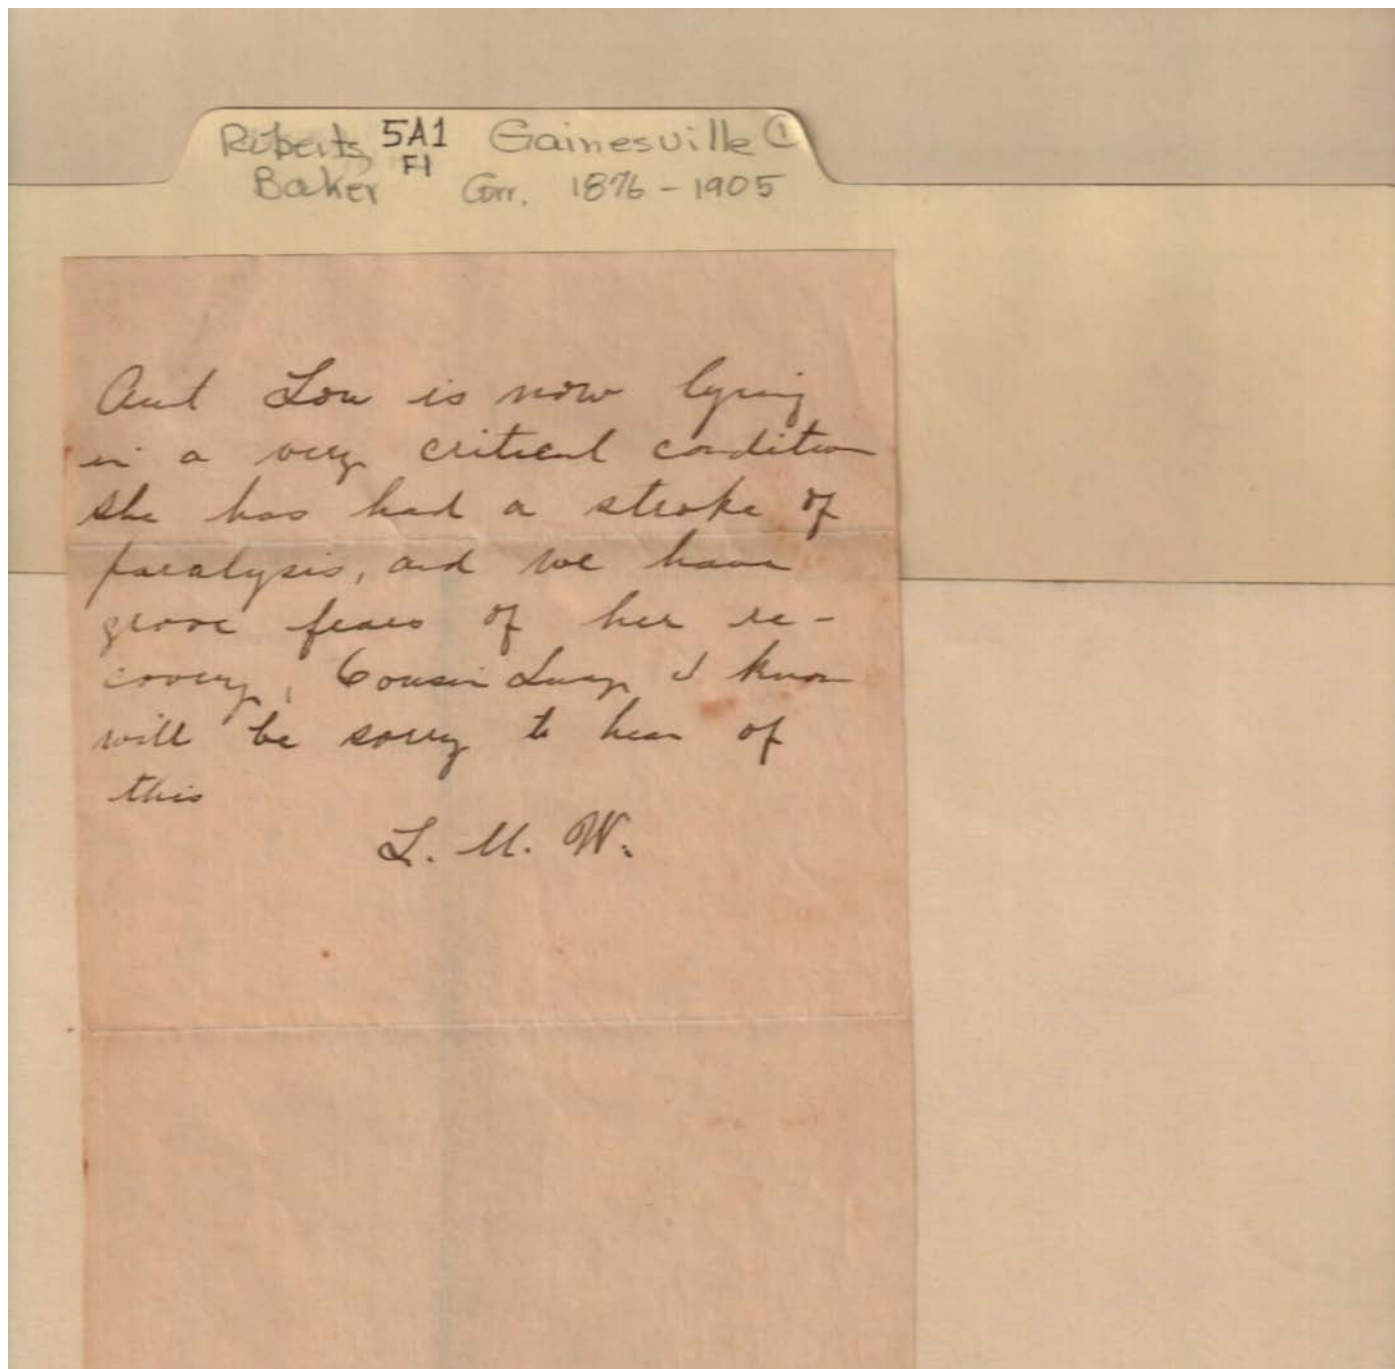 Roberts, 5A1 Gainesville ①
Baker F1 Corr. 1876-1905
Aunt Lou is now lying
in a very critical condition
she has had a stroke of
paralysis, and we have
grave fears of her re-
covery, Cousin Lucy I know
will be sorry to hear of
this
L. M. W.